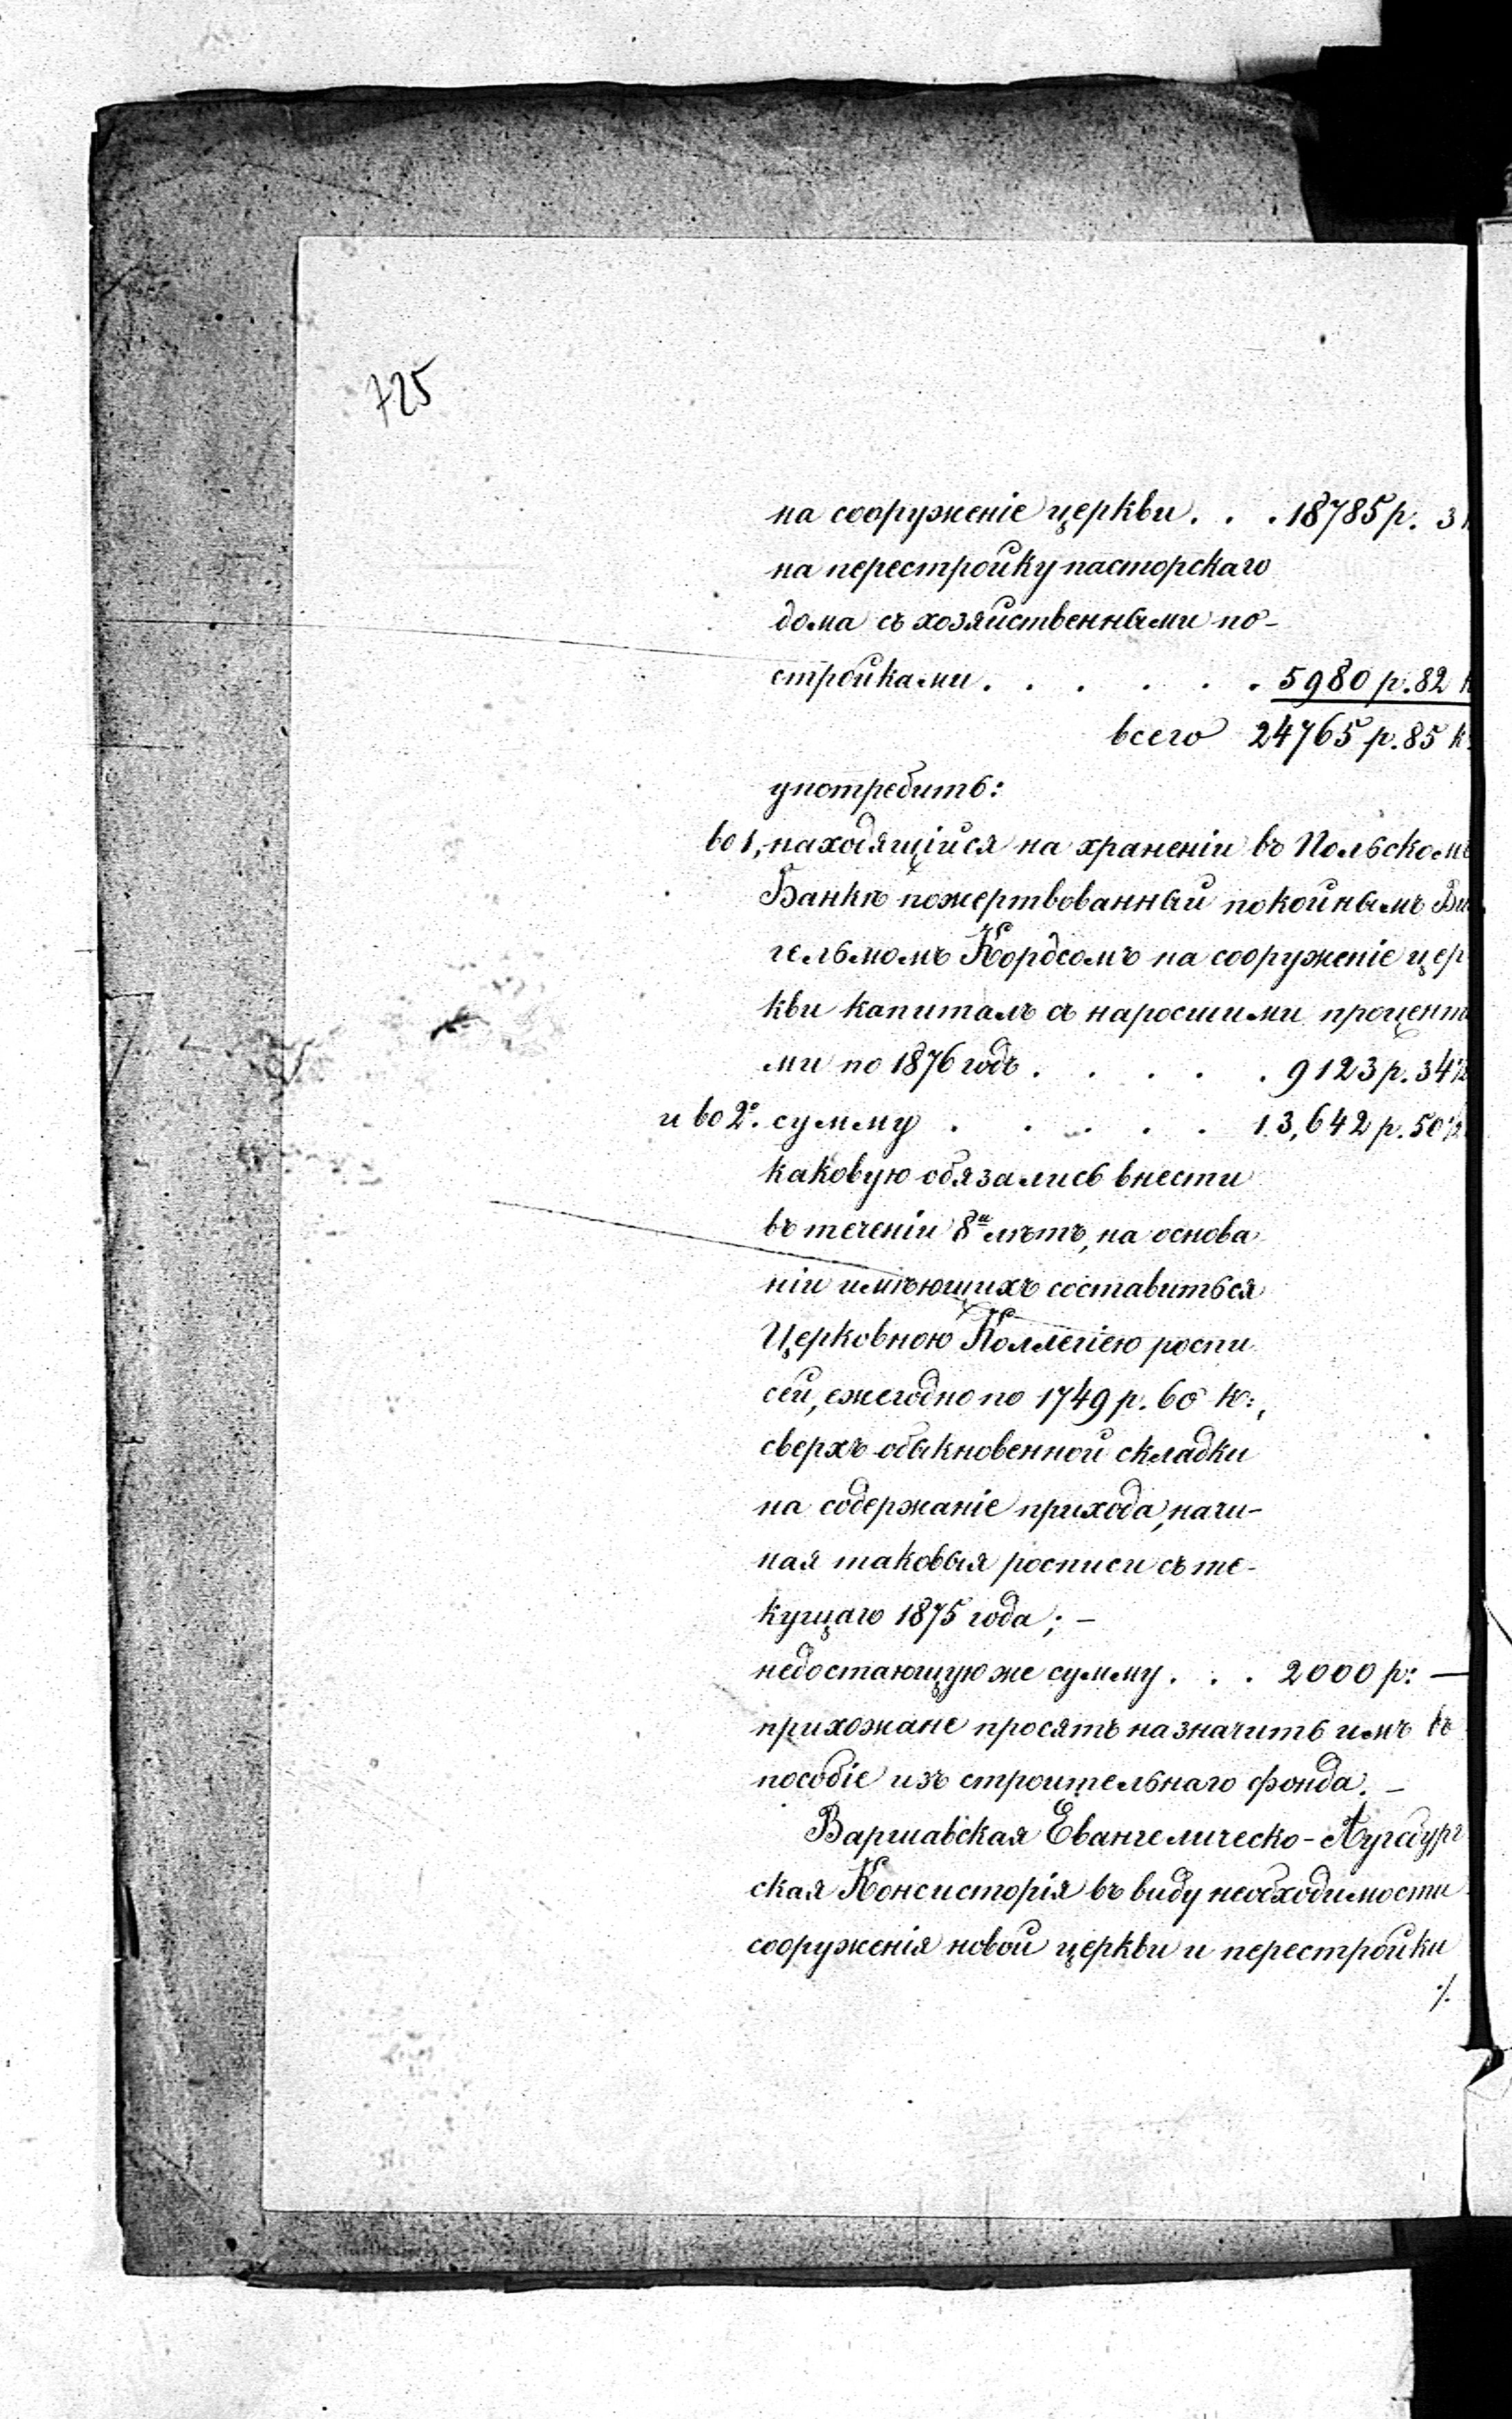 725
на сооруженіе церкви . . . 18785 р. 3 к
на перестройку пасторскаго
дома съ хозяйственными по-
стройками . . . . . . 5980 р. 82 к
всего 24765 р. 85 к.
употребить:
во 1, находящійся на храненіи въ Польскомъ
Банкѣ пожертвованный покойнымъ Ви
гельмомъ Кордсомъ на сооруженіе цер
кви капиталъ съ наросшими процент
ми по 1876 годъ . . . . . 9123 р. 34½
и во 2º. сумму . . . . . 13,642 р. 50½
каковую обязались внести
въ теченіи 8и лѣтъ, на основа
ніи имѣющихъ составиться
Церковною Коллегіею роспи
сей, ежегодно по 1749 р. 60 к:,
сверхъ обыкновенной складки
на содержаніе прихода, начи-
ная таковыя росписи съ те-
кущаго 1875 года; —
недостающую же сумму . . . 2000 р: —
прихожане просятъ назначить имъ въ
пособіе изъ строительнаго фонда. —
Варшавская Евангелическо-Аугсбург
ская Консисторія въ виду необходимости
сооруженія новой церкви и перестройки
./.